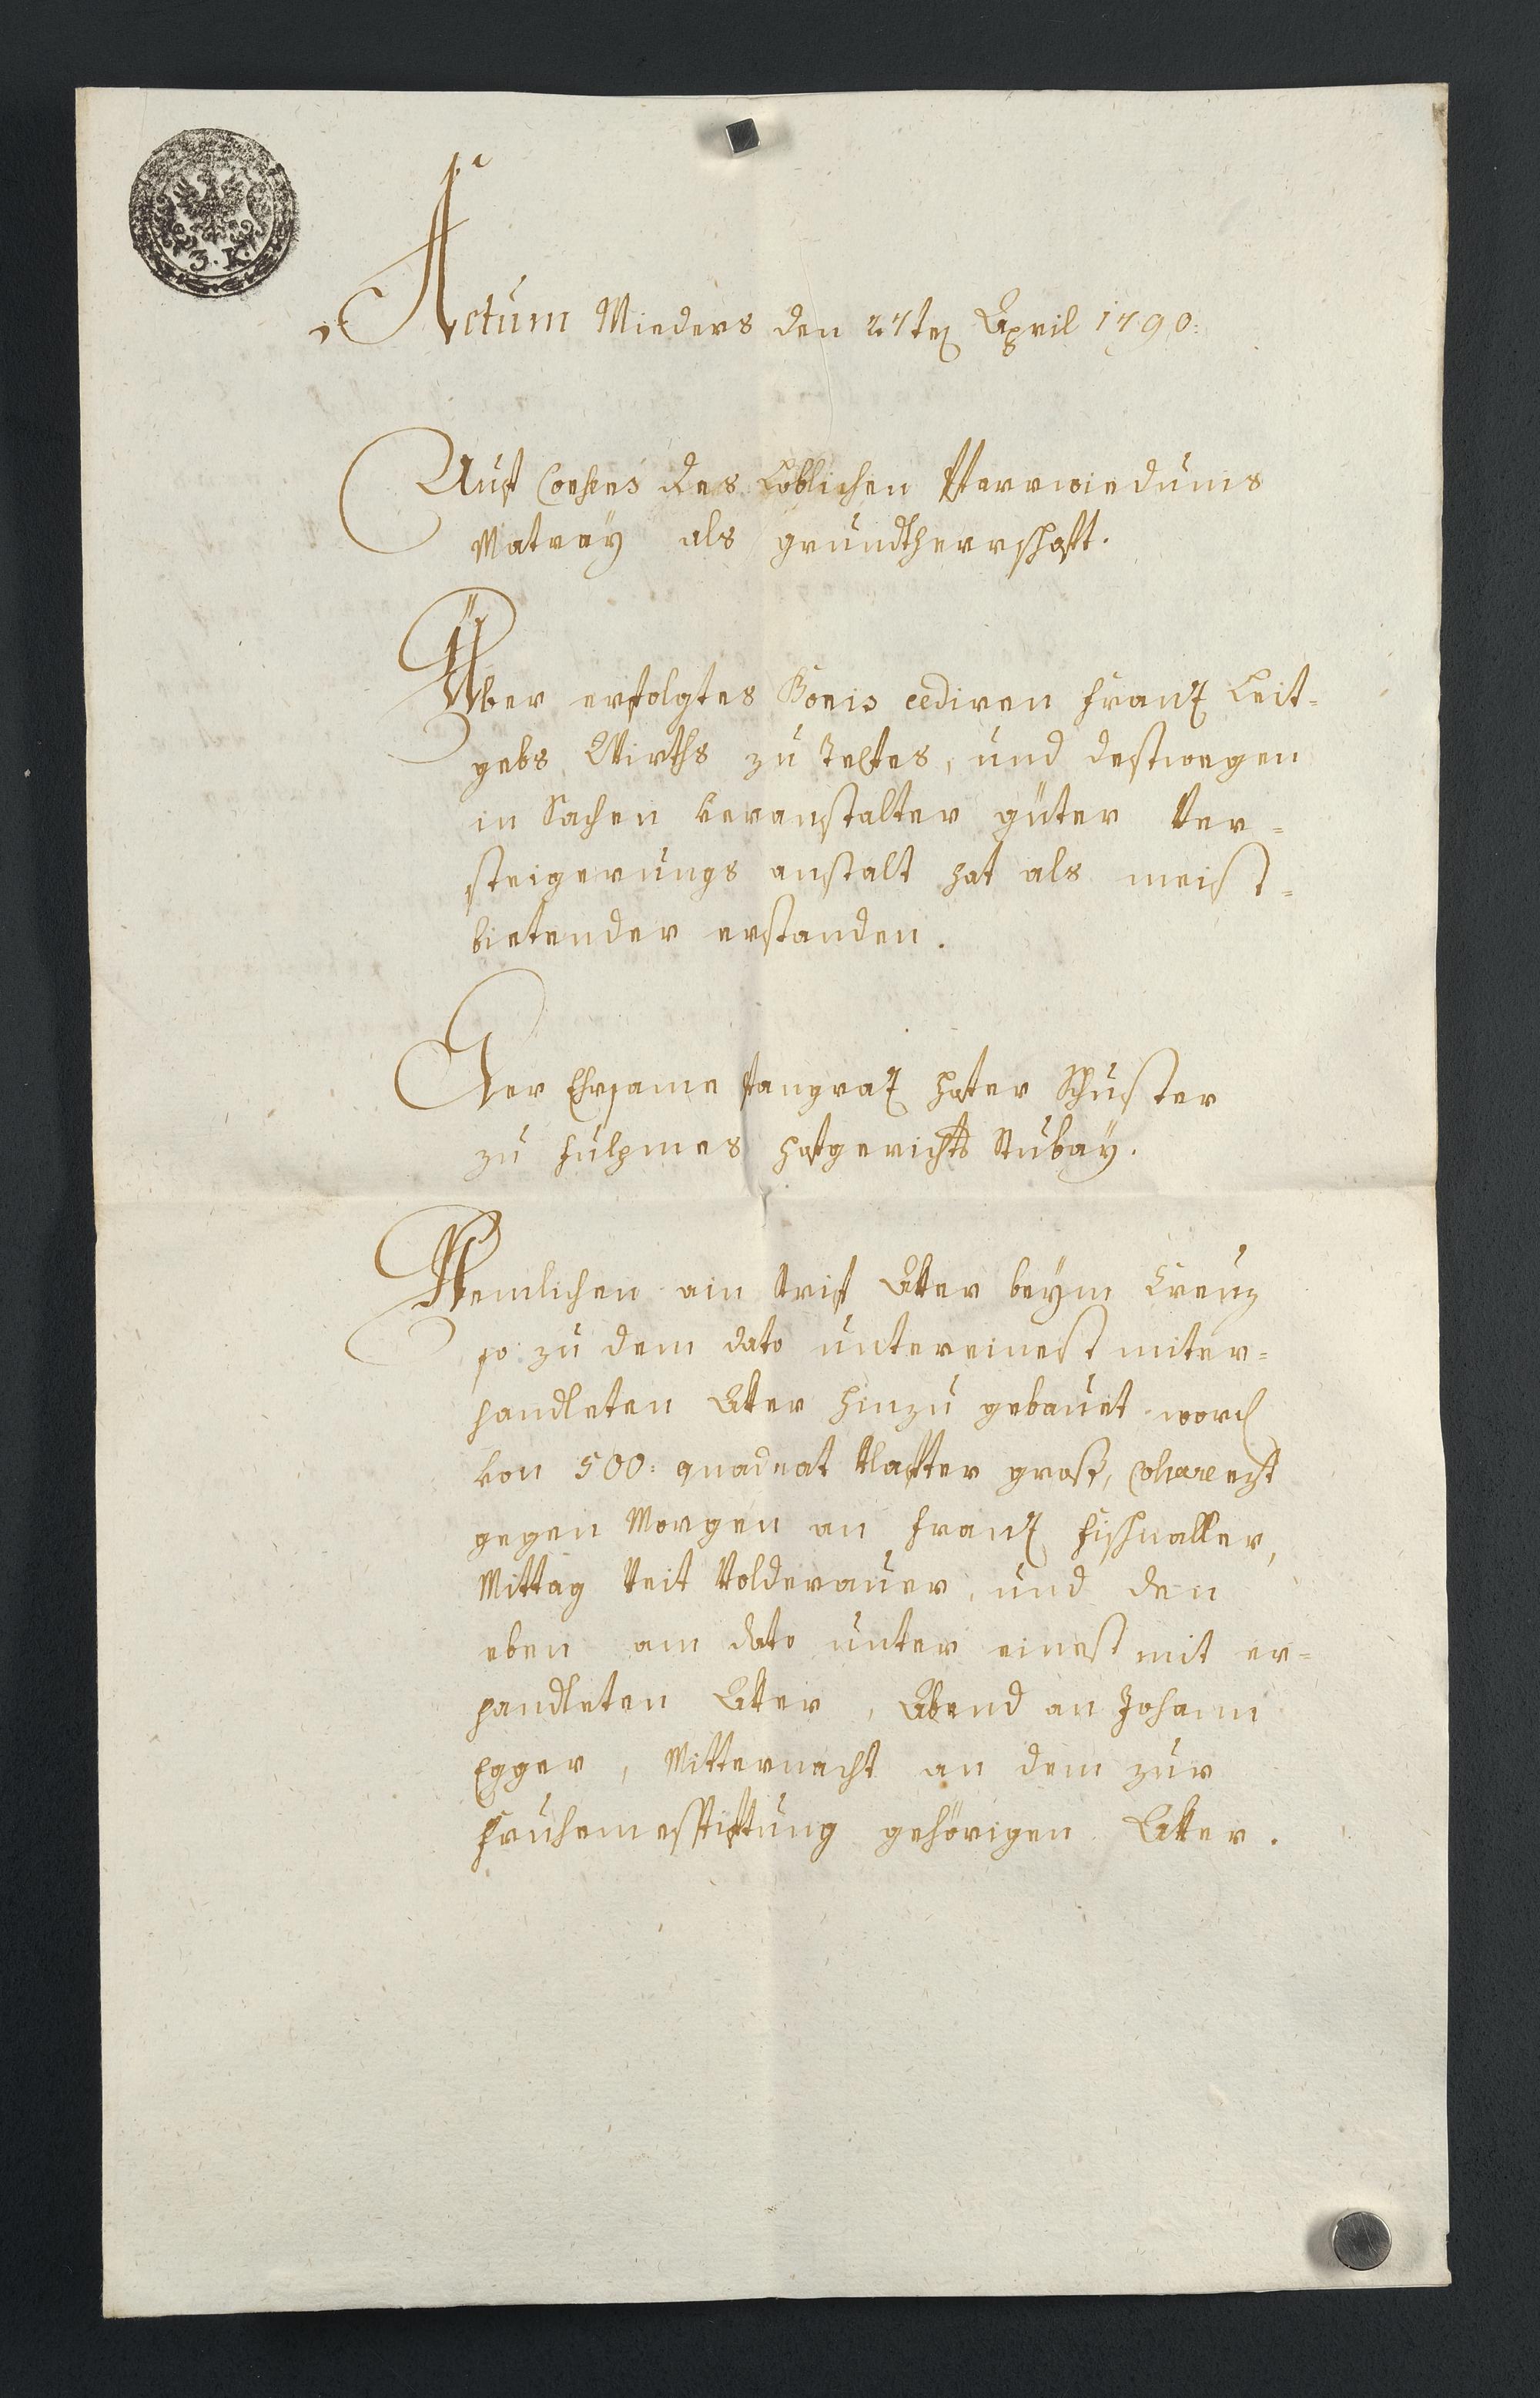 3. K.
Actum Mieders den 27ten April 1790:
Auf Consens des Löblichen Pfarrwiedums
Matray als grundtherrschaft.
Über erfolgtes Bonis cediren Franz Leit=
gebs Wirths zu Telfes, und deßtwegen
in Sachen veranstalter güter Ver=
steigerungs anstalt hat als meist=
bietender erstanden.
Der Ehrsame Pangraz Hofer Schuster
zu Fulpmes Hofgerichts Stubay.
Nemlichen ain Trift Aker beym Creuz
so zu dem dato untereinest miter=
handleten Aker hinzu gebauet word
von 500: quadrat Klafter groß, Cohaerezt
gegen Morgen an Franz Fischnaller,
Mittag Veit Volderauer, und den
eben am dato unter einest mit er=
handleten Aker, Abend an Johann
Egger, Mitternacht an dem zur
Fruhemeßstiftung gehörigen Aker.